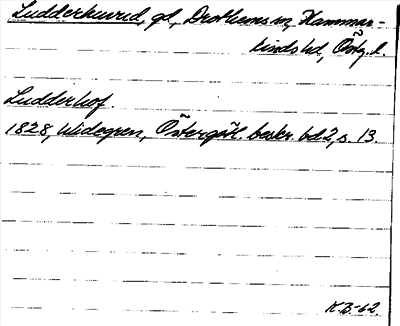 Ludderhuvud, gd, Drothems sn, Hammar-
kinds hd, Östg. l.
Ludderhof.
1828, Widegren, Östergötl. beskr. bd 2, s. 13.
K.B-62.